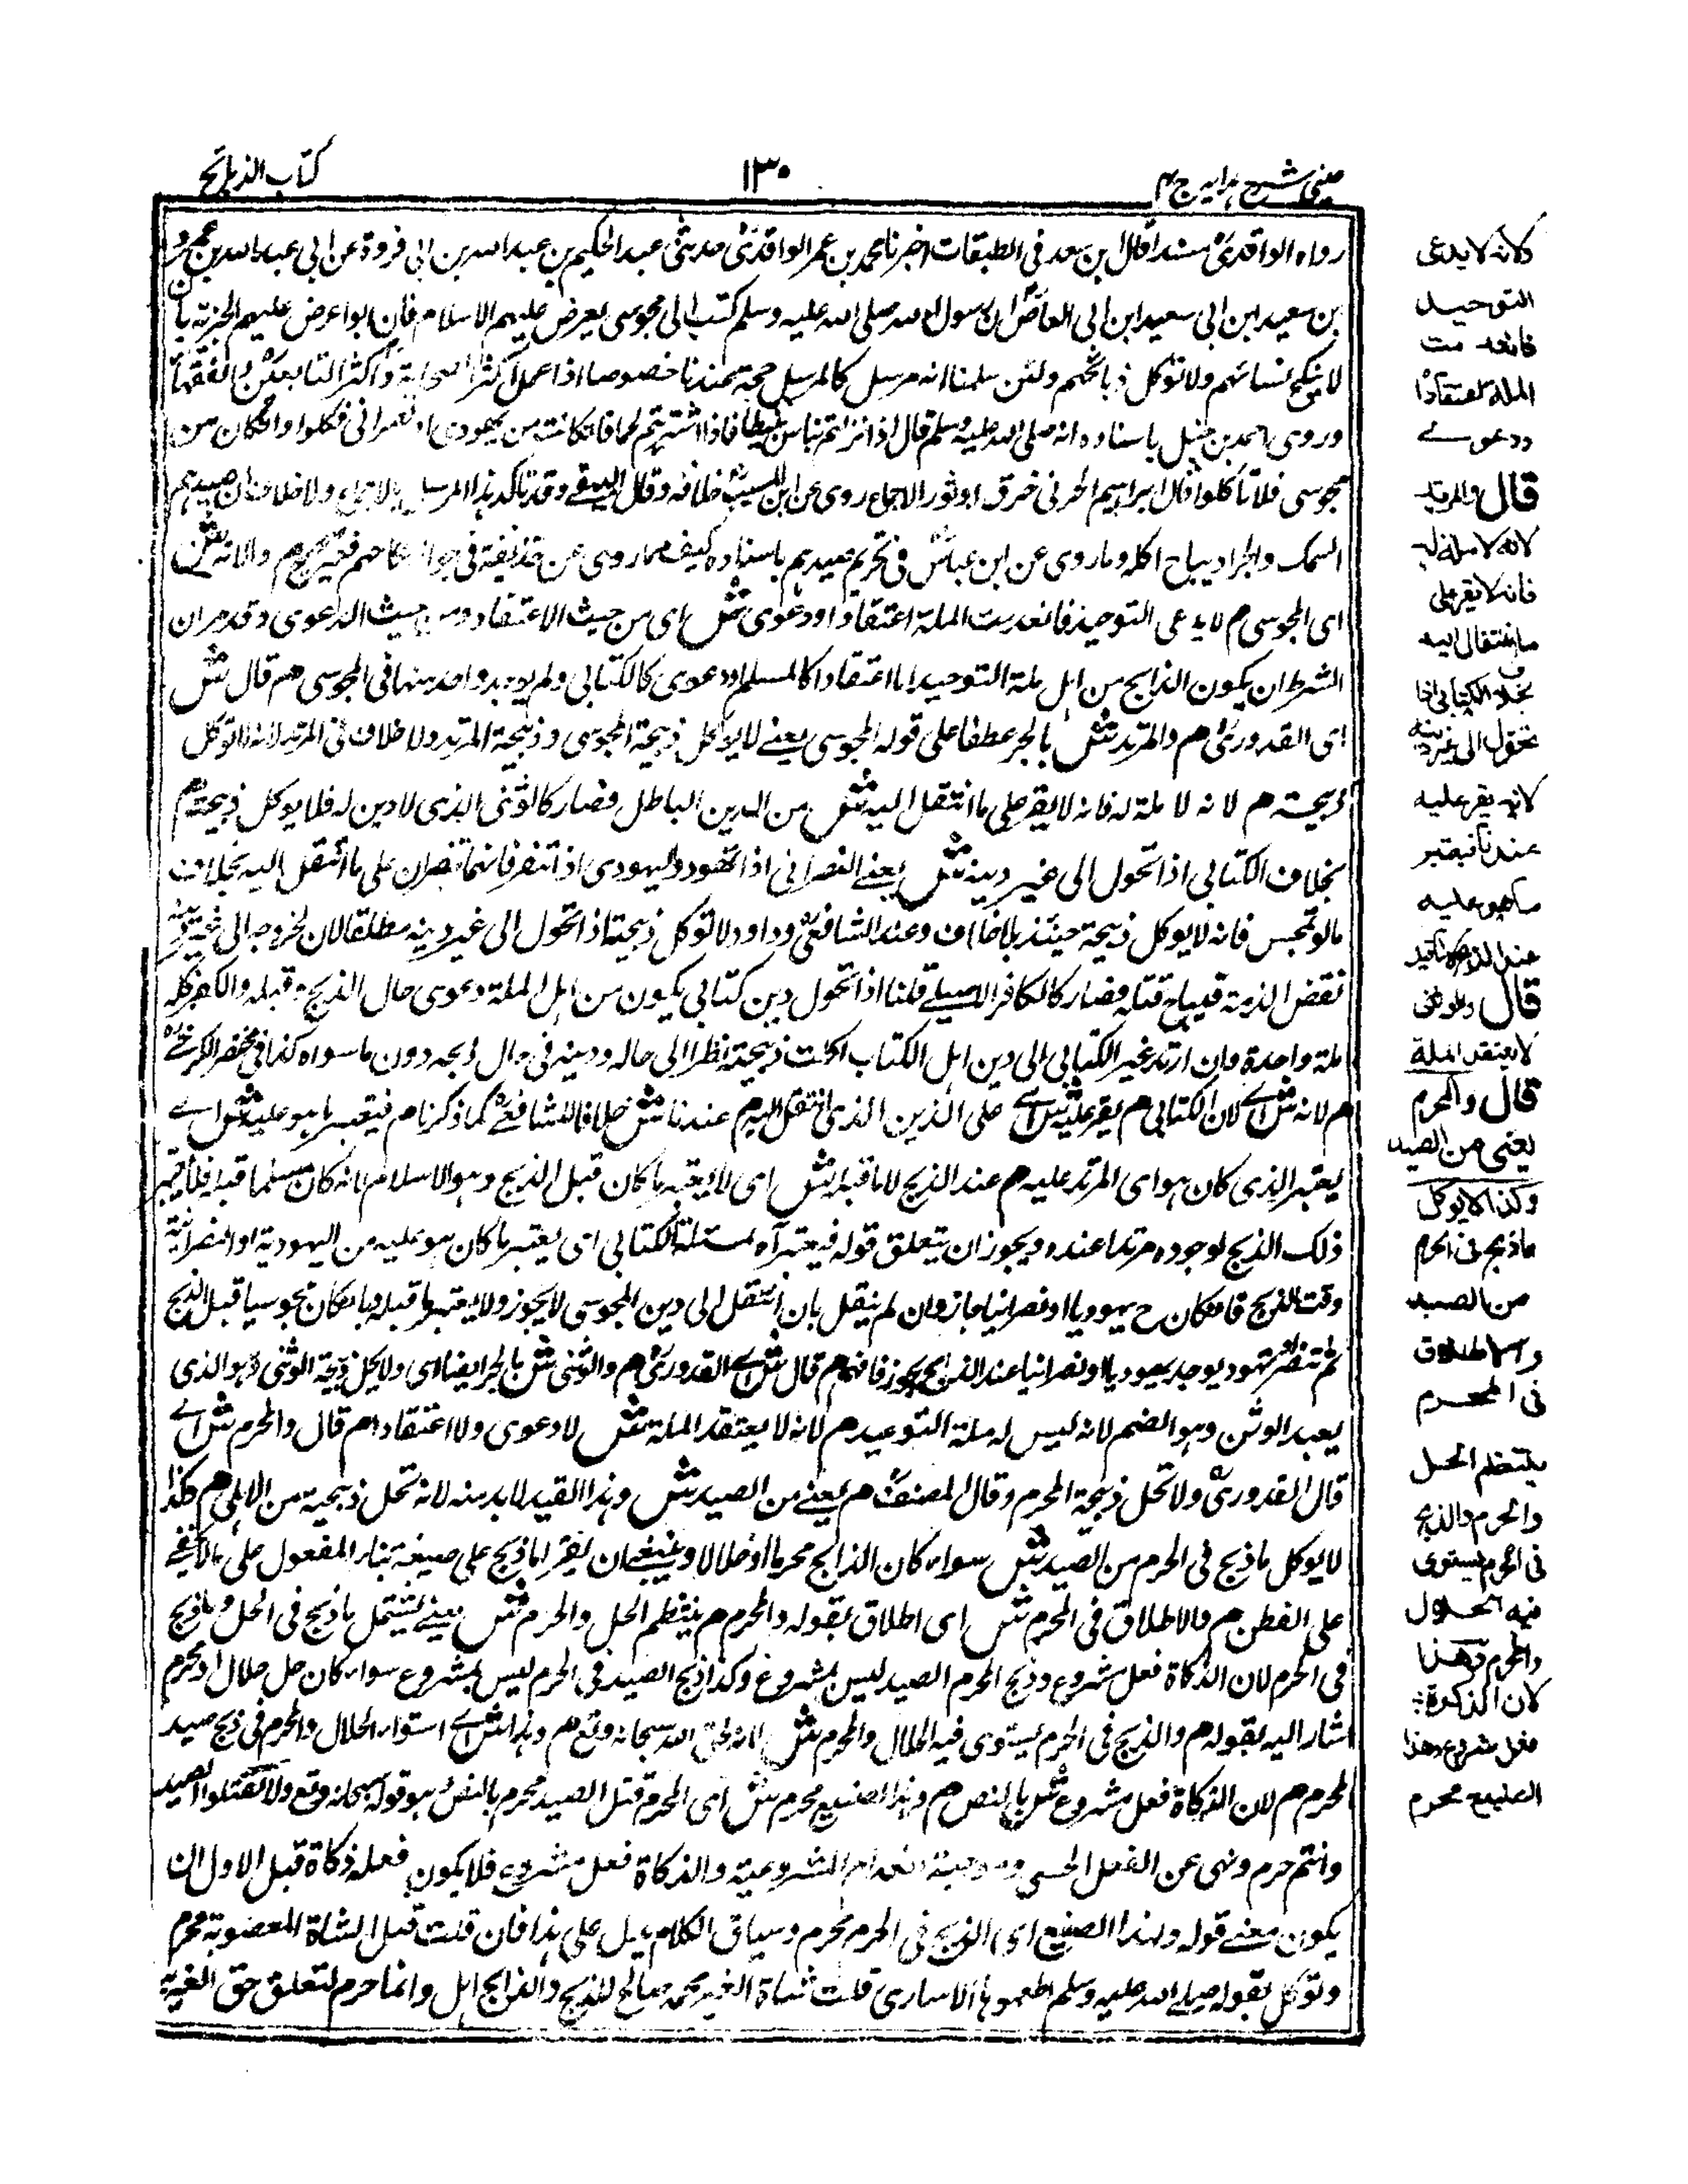 عيني شرح هدايه ج ٤
١٣٠
كتاب الذبائح
رواه الواقدي مسندا قال ابن سعد في الطبقات اخبرنا محمد بن عمر الواقدي حدثني عبد الحكيم بن عبد الله بن ابي فروة عن ابي عبد الله بن عمرو
بن سعيد ابن ابي سعيد ابن ابي العاص ان رسول الله صلى الله عليه وسلم كتب الى مجوسي يعرض عليهم الاسلام فان ابوا عرض عليهم الجزية بان
لا ينكح نسائهم ولا توكل ذبائحهم ولئن سلمنا انه مرسل كالمرسل حجة عندنا خصوصا اذا عمل اكثر الصحابة واكثر التابعين والفقهاء
وروى احمد بن حنبل باسناده انه صلى الله عليه وسلم قال اذا نزلتم فاذا اشتريتم لحما فان كانت من يهودي او نصراني فكلوا وان كان من
مجوسي فلا تأكلوا قال ابراهيم الحربي خرق ابو ثور الاجماع روى عن ابن المسيب خلافه وقال البيهقي وقد تأكد هذا المرسل بالاجماع ولا خلاف ان صيدهم
السمك والجراد يباح اكله وما روى عن ابن عباس في تحريم صيدهم باسناده كيف مما روى عن حذيفة في جواز م ولانه ش
اى المجوسي م لا يدعى التوحيد فانعدمت الملة اعتقادا ودعوى ش اى من حيث الاعتقاد ومن حيث الدعوى وقد مر ان
الشرط ان يكون الذابح من اهل ملة التوحيد اما اعتقادا كالمسلم او دعوى كالكتابي ولم يوجد واحد منها في المجوسي م قال ش
اى القدوري م والمرتد ش بالجر عطفا على قوله المجوسي يعني لا يوكل ذبيحة المجوسي وذبيحة المرتد ولا خلاف في المرتد لانه لا توكل
ذبيحته م لانه لا ملة له فانه لا يقر على ما انتقل اليه ش من الدين الباطل فصار كالوثني الذي لا دين له فلا يوكل ذبيحته م
بخلاف الكتابي اذا تحول الى غير دينه ش يعني النصراني اذا تهود واليهودي اذا تنصر فانهما يقران على ما انتقل اليه بخلاف
ما لو تمجس فانه لا يوكل ذبيحة حينئذ بلا خلاف وعند الشافعي وداود لا توكل ذبيحته اذا تحول الى غير دينه مطلقا لان لخروجه الى غير دينه
نقض الذمة فيباح قتله فصار كالكافر الاصلي قلنا اذا تحول دين كتابي يكون من اهل الملة دعوى حال الذبح وقبله والكفر كله
ملة واحدة وان ارتد غير الكتابي الى دين اهل الكتاب اكلت ذبيحته نظرا الى حاله ودينه في حال ذبحه دون ما سواه كذا في مختصر الكرخي
م لانه ش اى لان الكتابي م يقر عليه ش اى على الدين الذي انتقل اليه م عندنا ش خلافا للشافعي كما ذكرنا م فيعتبر ما هو عليه ش اى
يعتبر الذي كان هو اى المرتد عليه م عند الذبح لا ما قبله ش اى لا يعتبر ما كان قبل الذبح وهو الاسلام لانه كان مسلما قبله فلا يعتبر
ذلك الذبح لوجوده مرتدا عنده ويجوز ان يتعلق قوله فيعتبر آه بمسئلة الكتابي اى يعتبر ما كان هو عليه من اليهودية او النصرانية
وقت الذبح فان كان ح يهوديا او نصرانيا جاز وان لم ينقل بان انتقل الى دين المجوسي لا يجوز ولا يعتبر ما قبله وان كان مجوسيا قبل الذبح
ثم تنصر او تهود يوجد يهوديا او نصرانيا عند الذبح يجوز فافهم م قال ش اى القدوري م والوثني ش بالجر ايضا اى ولا يحل ذبيحة الوثني وهو الذي
يعبد الوثن وهو الصنم لانه ليس له ملة التوحيد م لانه لا يعتقد الملة ش لا دعوى ولا اعتقادا م قال والمحرم ش اى
قال القدوري ولا تحل ذبيحة المحرم وقال المصنف م يعني من الصيد ش وهذا القيد لا بد منه لانه تحل ذبيحته من الاهلي م كذا
لا يوكل ما ذبح في الحرم من الصيد ش سواء كان الذابح محرما او حلالا وينبغي ان يقرا ما ذبح على صيغة بناء المفعول على ما لا يخفى
على الفطن م والاطلاق في المحرم ش اى اطلاق بقوله والمحرم م ينتظم الحل والحرم ش يعني يشتمل ما ذبح في الحل وما ذبح
في الحرم لان الذكاة فعل مشروع وذبح المحرم الصيد ليس بمشروع وكذا ذبح الصيد في الحرم ليس بمشروع سواء كان حلال او محرم
اشار اليه بقوله م والذبح في الحرم يستوى فيه الحلال والمحرم ش لانه لحق الله سبحانه وتع م وهذا ش اى استواء الحلال والمحرم في ذبح صيد
الحرم م لان الذكاة فعل مشروع ش بالنص م وهذا الصنيع محرم ش اى المحرم قتل الصيد محرم بالنص وهو قوله سبحانه وتع ولا تقتلوا الصيد
وانتم حرم ونهى عن الفعل الحسى وموجبه انعدام المشروعية والذكاة فعل مشروع فلا يكون فعله ذكاة قبل الاول ان
يكون معنى قوله وهذا الصنيع اى الذبح في الحرم محرم وسياق الكلام يدل على هذا فان قلت قبل الشاة المغصوبة محرم
وتوكل بقوله صلى الله عليه وسلم اطعموها الاسارى قلت شاة الغير محمه صالح للذبح والذابح اهل وانما حرم لتعلق حق الغير به
ولانه لا يدعى
التوحيد
فانعدمت
الملة اعتقادا
ودعوى
قال والمرتد
لانه لا ملة له
فانه لا يقر على
ما انتقل اليه
بخلاف الكتابي اذا
تحول الى غير دينه
لانه يقر عليه
عندنا فيعتبر
ما هو عليه
عند الذبح
قال والوثني
لا يعتقد الملة
قال والمحرم
يعني من الصيد
وكذا لا يوكل
ما ذبح في الحرم
من الصيد
والاطلاق
في المحرم
ينتظم الحل
والحرم والذبح
في الحرم يستوى
فيه الحلال
والمحرم وهذا
لان الذكوة
فعل مشروع وهذا
الصنيع محرم